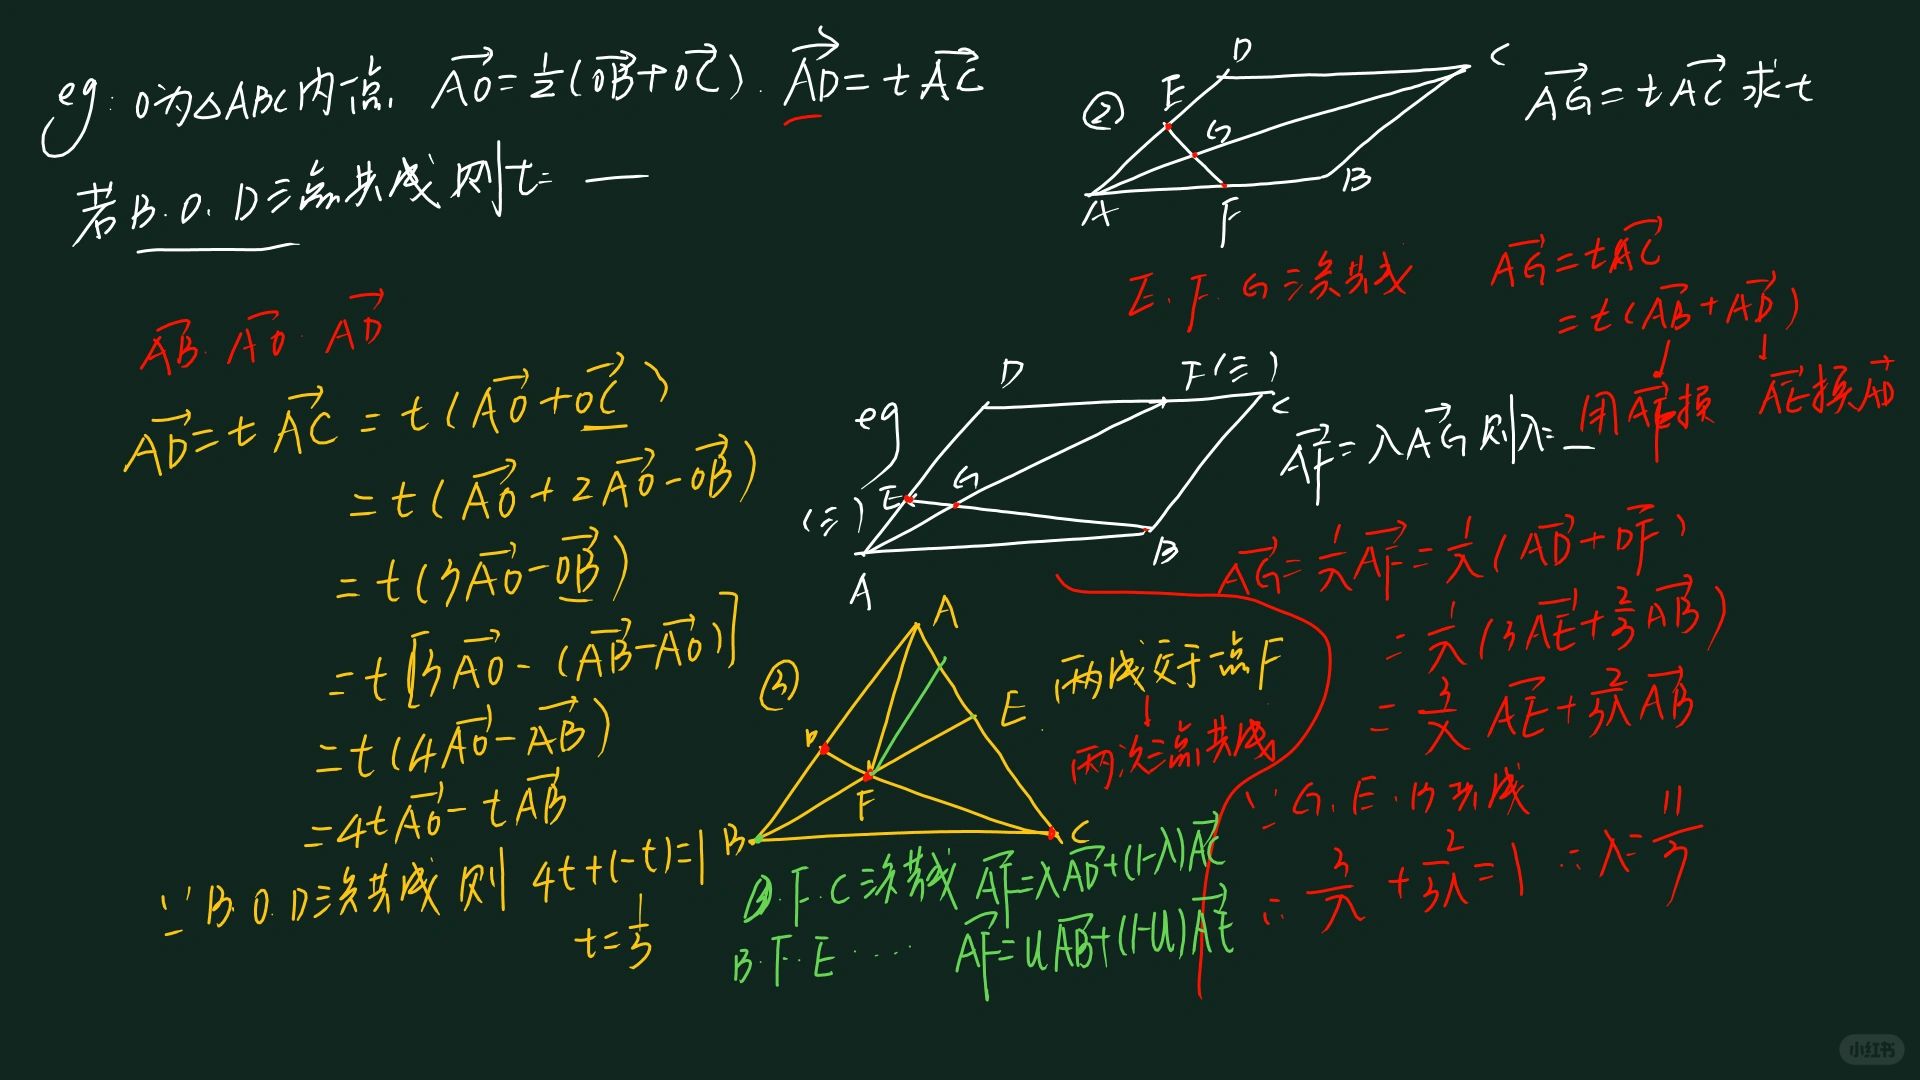 eg: O为△ABC内一点, AO→=½(OB→+OC→). AD→=tAC→
若B.O.D三点共线则t=__
AB→. AO→. AD→
AD→=tAC→=t(AO→+OC→)
=t(AO→+2AO→-OB→)
=t(3AO→-OB→)
=t[3AO→-(AB→-AO→)]
=t(4AO→-AB→)
=4tAO→-tAB→
∵B.O.D三点共线则 4t+(-t)=1
t=1/3
② D C E G A F B
AG→=tAC→求t
E.F.G三点共线
AG→=tAC→
=t(AB→+AD→)
用AF→换 AE→换AD→
eg D F(三) C
(三) E G A B
AF→=λAG→则λ=__
AG→=1/λAF→=1/λ(AD→+DF→)
=1/λ(3AE→+2/3AB→)
=3/λAE→+2/3λAB→
∵G.E.B共线
∴3/λ+2/3λ=1 ∴λ=11/3
③ A D E F B C
两线交于一点F
↓
两次三点共线
D.F.C三点共线 AF→=λAD→+(1-λ)AC→
B.F.E…… AF→=uAB→+(1-u)AE→
小红书